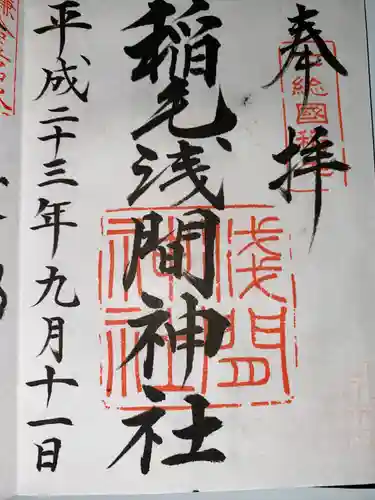 奉拝
稲毛浅間神社
浅間
神社
平成二十三年九月十一日